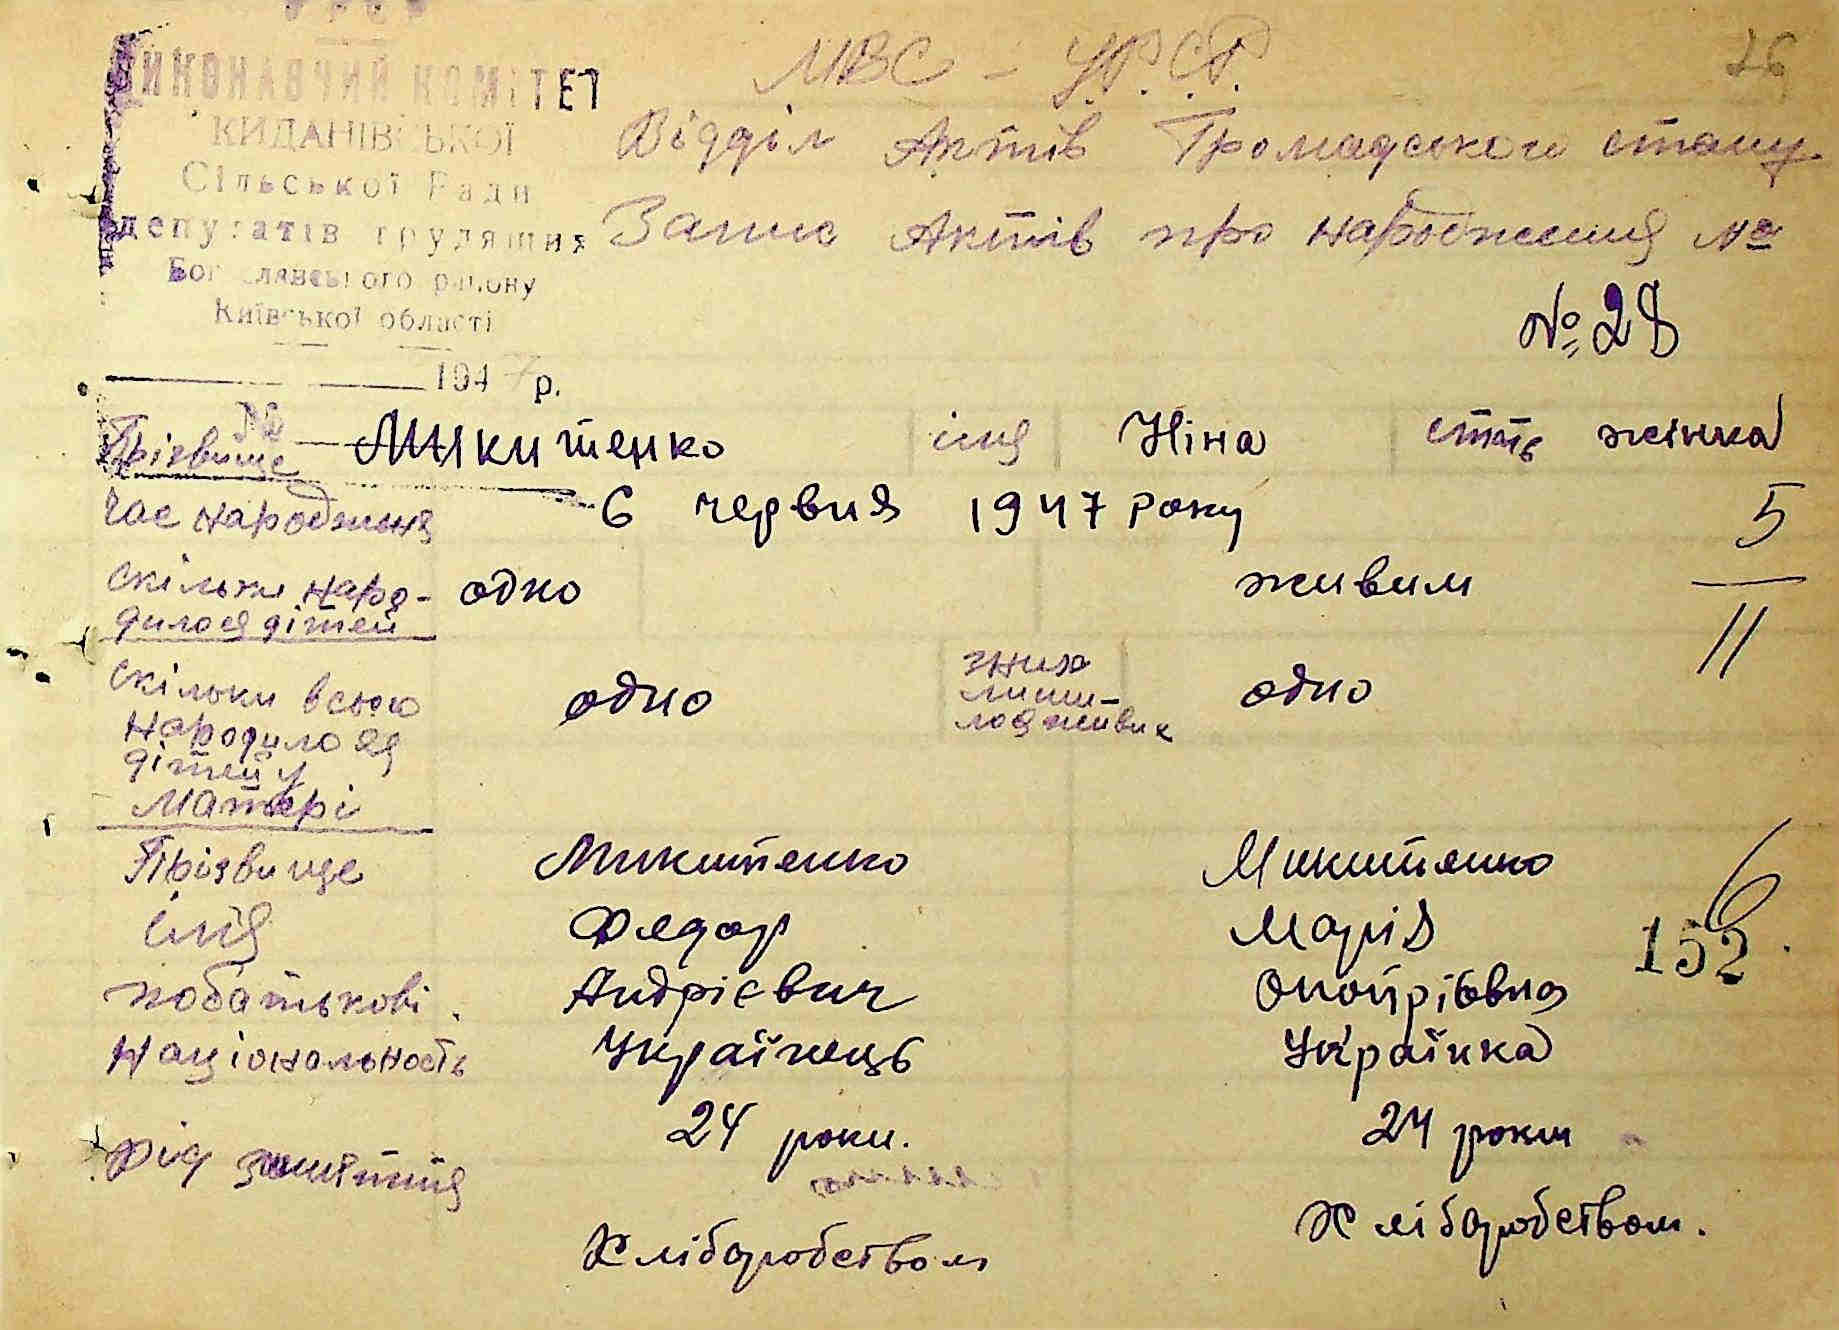 УРСР
ВИКОНАВЧИЙ КОМІТЕТ
КИДАНІВСЬКОЇ
Сільської Ради
депутатів трудящих
Богуславського району
Київської області
1947 р.
№
МВС - У.Р.С.Р. 26
Відділ Актів Громадського стану
Запис Актів про народження №
№ 28
Прізвище Микитенко імя Ніна стать жінка
Час народження 6 червня 1947 року 5
скільки народ- одно живим
дилося дітей 11
Скільки всього одно з них одно
народилося лиши-
дітей у лося живих
матері
Прізвище Микитенко Микитенко 6
імя Федор Марія 152
побатькові Андрієвич
Національность Українець Українка
24 роки. 24 роки
рід заняття
Хліборобством Хліборобством.